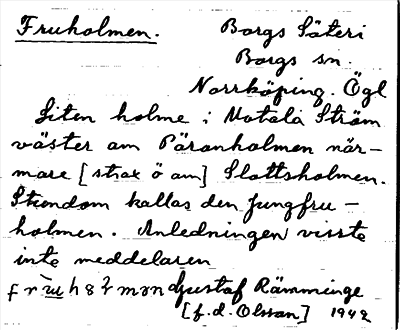 Fruholmen. Borgs Säteri
Borgs sn.
Norrköping. Ögl
Liten holme i Motala Ström
väster om Päronholmen när-
mare [strax ö om] Slottsholmen.
Stundom kallas den Jungfru-
holmen. Anledningen visste
inte meddelaren
Gustaf Rämminge
[f.d. Olsson] 1942